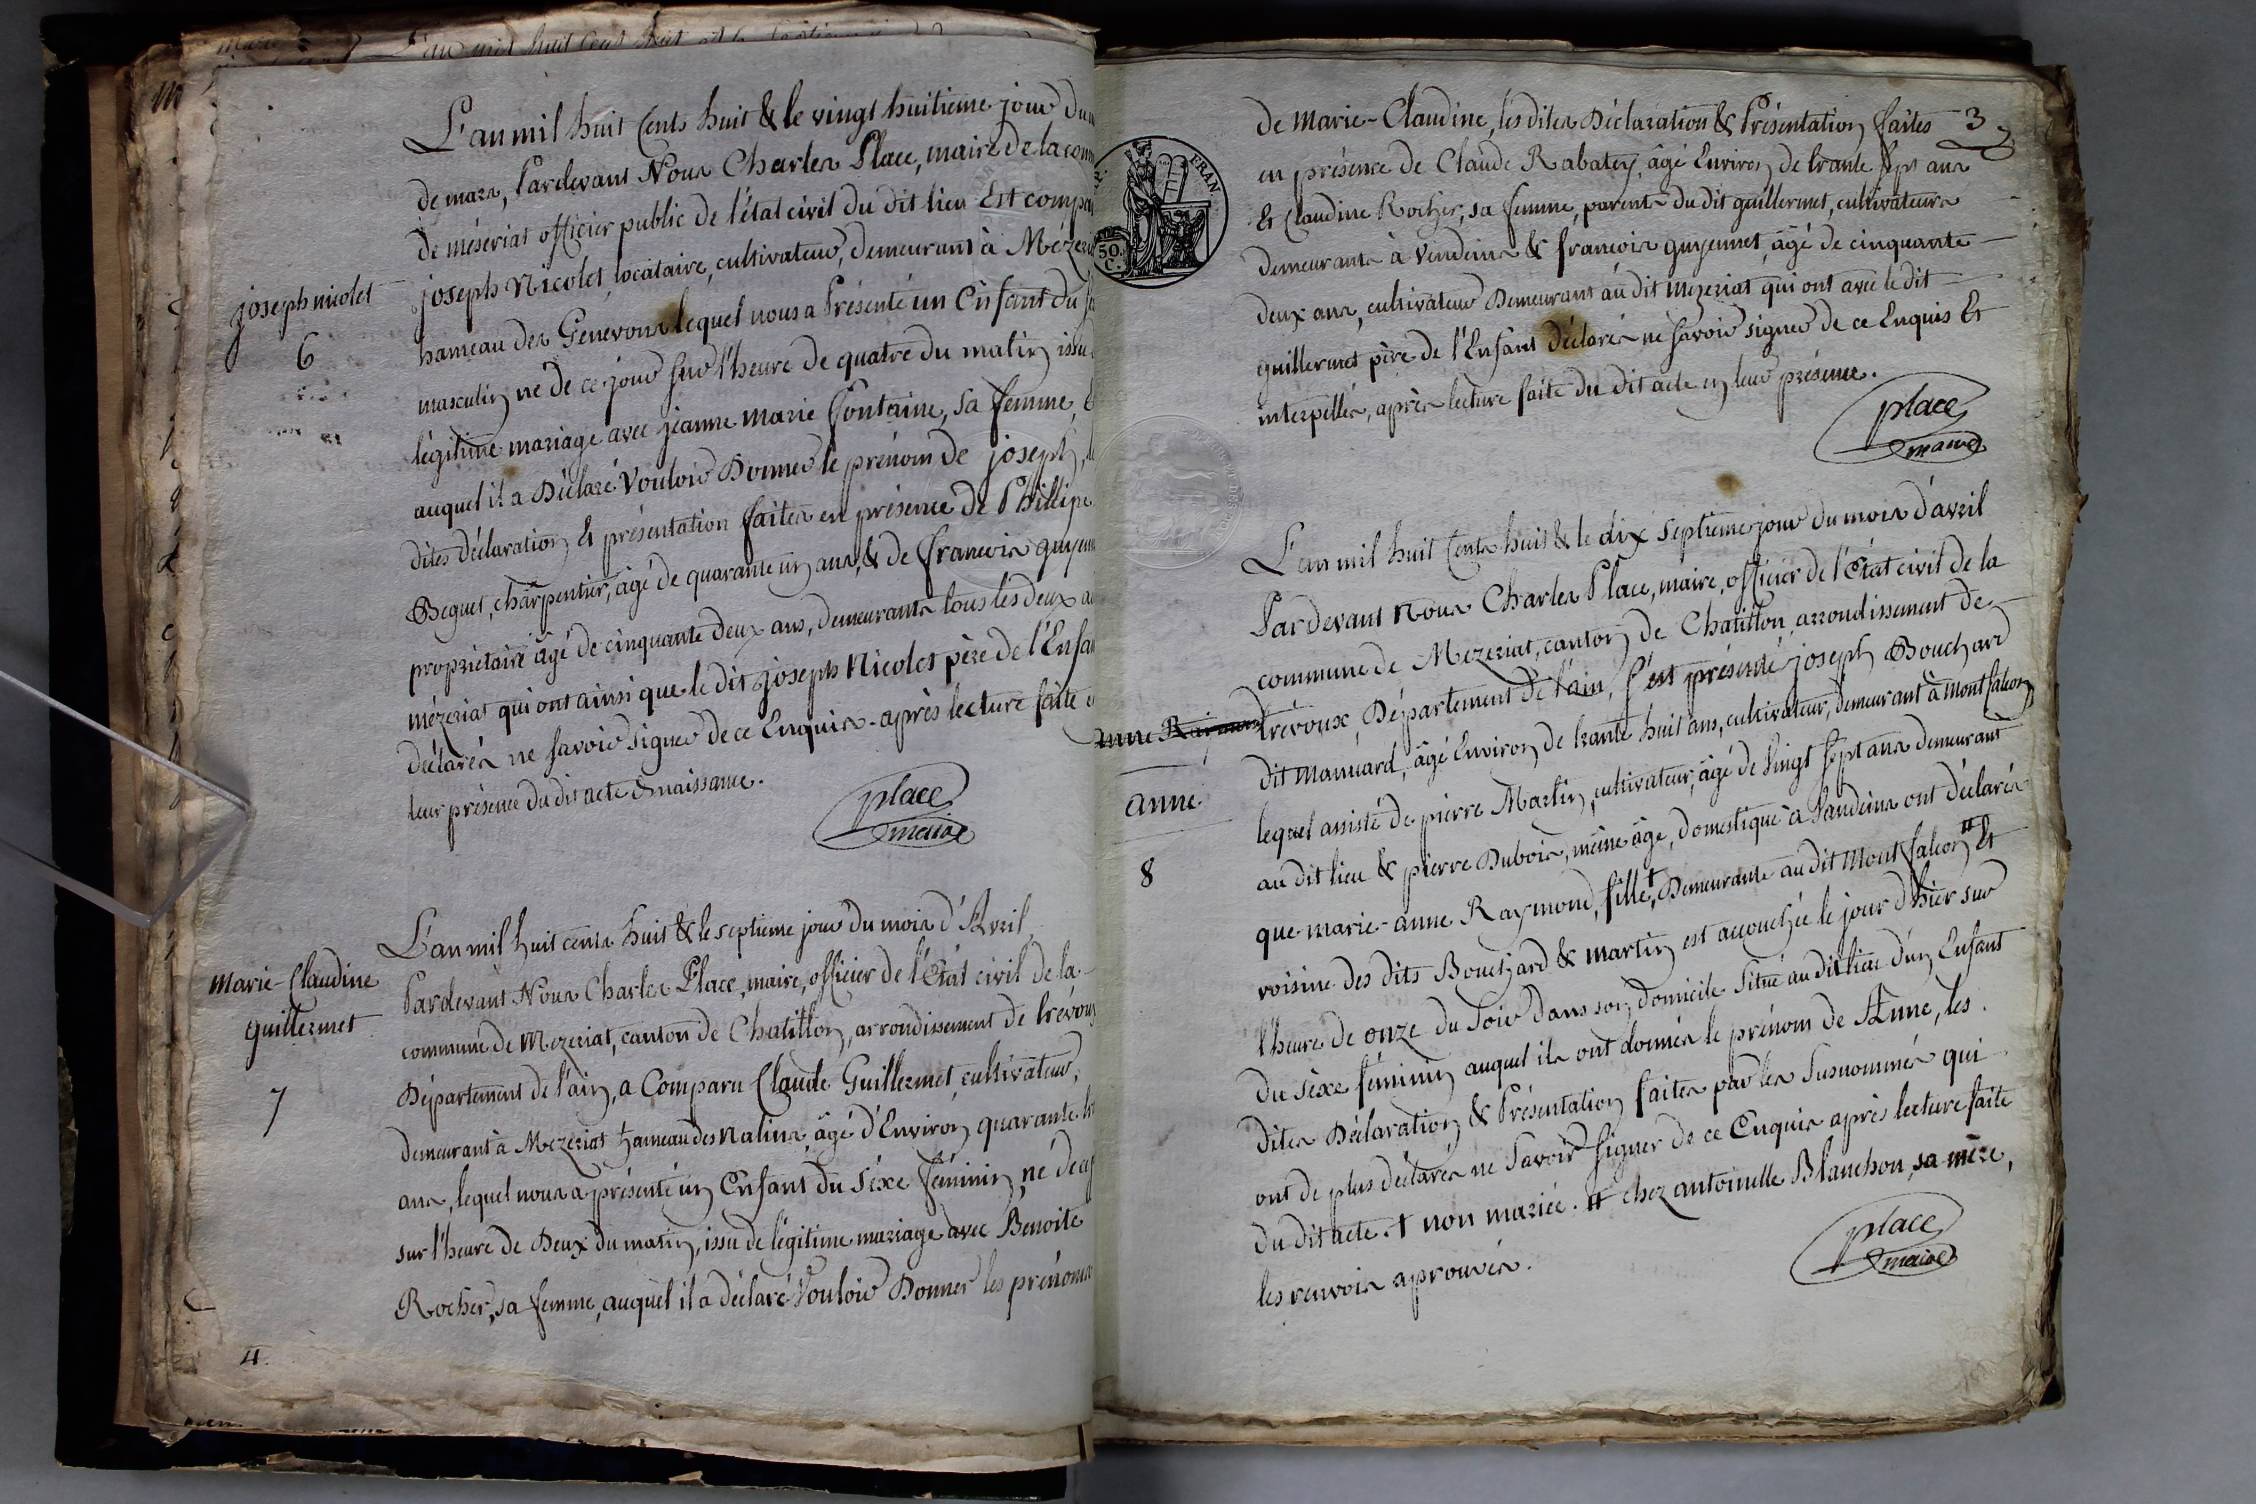 L'an mil huit Cents huit & le vingt huitieme jour du
de mars, Pardevant Nous Charles Place, maire de la com
de méseriat officier public de l'état civil du dit lieu Est compa
joseph Nicolet, locataire, cultivateur, demeurant à Mézeri
hameau des Genevons lequel nous a Présenté un Enfant du
masculin né de ce jour sur l'heure de quatre du matin issu
légitime mariage avec jeanne marie Fontaine, sa femme,
auquel il a Déclaré Vouloir Donner le prénom de joseph,
dites déclaration Et présentation faites en présence de Phillipe
Beguet, charpentier, âgé de quarante un ans, & de francois guyenn
proprietaire âgé de cinquante deux ans, demeurants tous les deux a
mézeriat qui ont ainsi que le dit joseph Nicolet père de l'Enfa
déclarés ne savoir signer de ce Enquis. après lecture faite
leur présence du dit acte de naissance.
place
maire
joseph nicolet
6
L'an mil huit cents huit & le septieme jour du mois d'Avril
Pardevant Nous Charles Place, maire, officier de l'Etat civil de la
commune de Mezeriat, canton de Chatillon, arrondissement de trévoux
Département de l'ain, a Comparu Claude Guillermet cultivateur,
demeurant à Mezeriat hameau des nalins âgé d'Environ quarante
ans, lequel nous a présenté un Enfant du séxe féminin, né de
sur l'heure de Deux du matin, issu de légitime mariage avec Benoite
Rocher, sa femme, auquel il a déclaré Vouloir Donner les prénoms
Marie-Claudine
guillermet
7
4.
3
de Marie-Claudine, les dites Déclaration & Présentation faites
en présence de Claude Rabatery, âgé Environ de trante sept ans
Et Claudine Rocher, sa femme, parents du dit guillermet, cultivateurs
demeurants à Vendeins & francois guyennet, âgé de cinquante
deux ans, cultivateur Demeurant au dit mezeriat qui ont avec le dit
guillermet père de l'Enfant déclarés ne savoir signer de ce Enquis Et
interpellés, après lecture faite du dit acte en leur présence.
place
maire
FRAN
50
C.
L'an mil huit Cents huit & le dix septieme jour du mois d'avril
Pardevant Nous Charles Place, maire, officier de l'État civil de la
commune de Mezeriat, canton de Chatillon, arrondissement de
trévoux, Département de l'ain, s'est présenté joseph Bouchard
dit manuard, âgé Environ de trante huit ans, cultivateur, demeurant à montfalcon
lequel assisté de pierre Martin, cultivateur, âgé de vingt sept ans demeurant
au dit lieu & pierre Dubois, même âge, domestique à Vandeins ont déclarés
que marie-anne Raymond, fille†, Demeurante au dit Montfalcon # Et
voisine des dits Bouchard & martin est accouchée le jour d'hier sur
l'heure de onze du soir dans son domicile situé au dit lieu d'un Enfant
du séxe féminin auquel ils ont donnés le prénom de Anne, les
dites Déclaration & Présentation faites par les susnommés qui
ont de plus déclarés ne savoir signer de ce Enquis après lecture faite
du dit acte. † non mariée. # chez antoinette Blanchon, sa mère,
les renvois aprouvés.
place
maire
anne
8